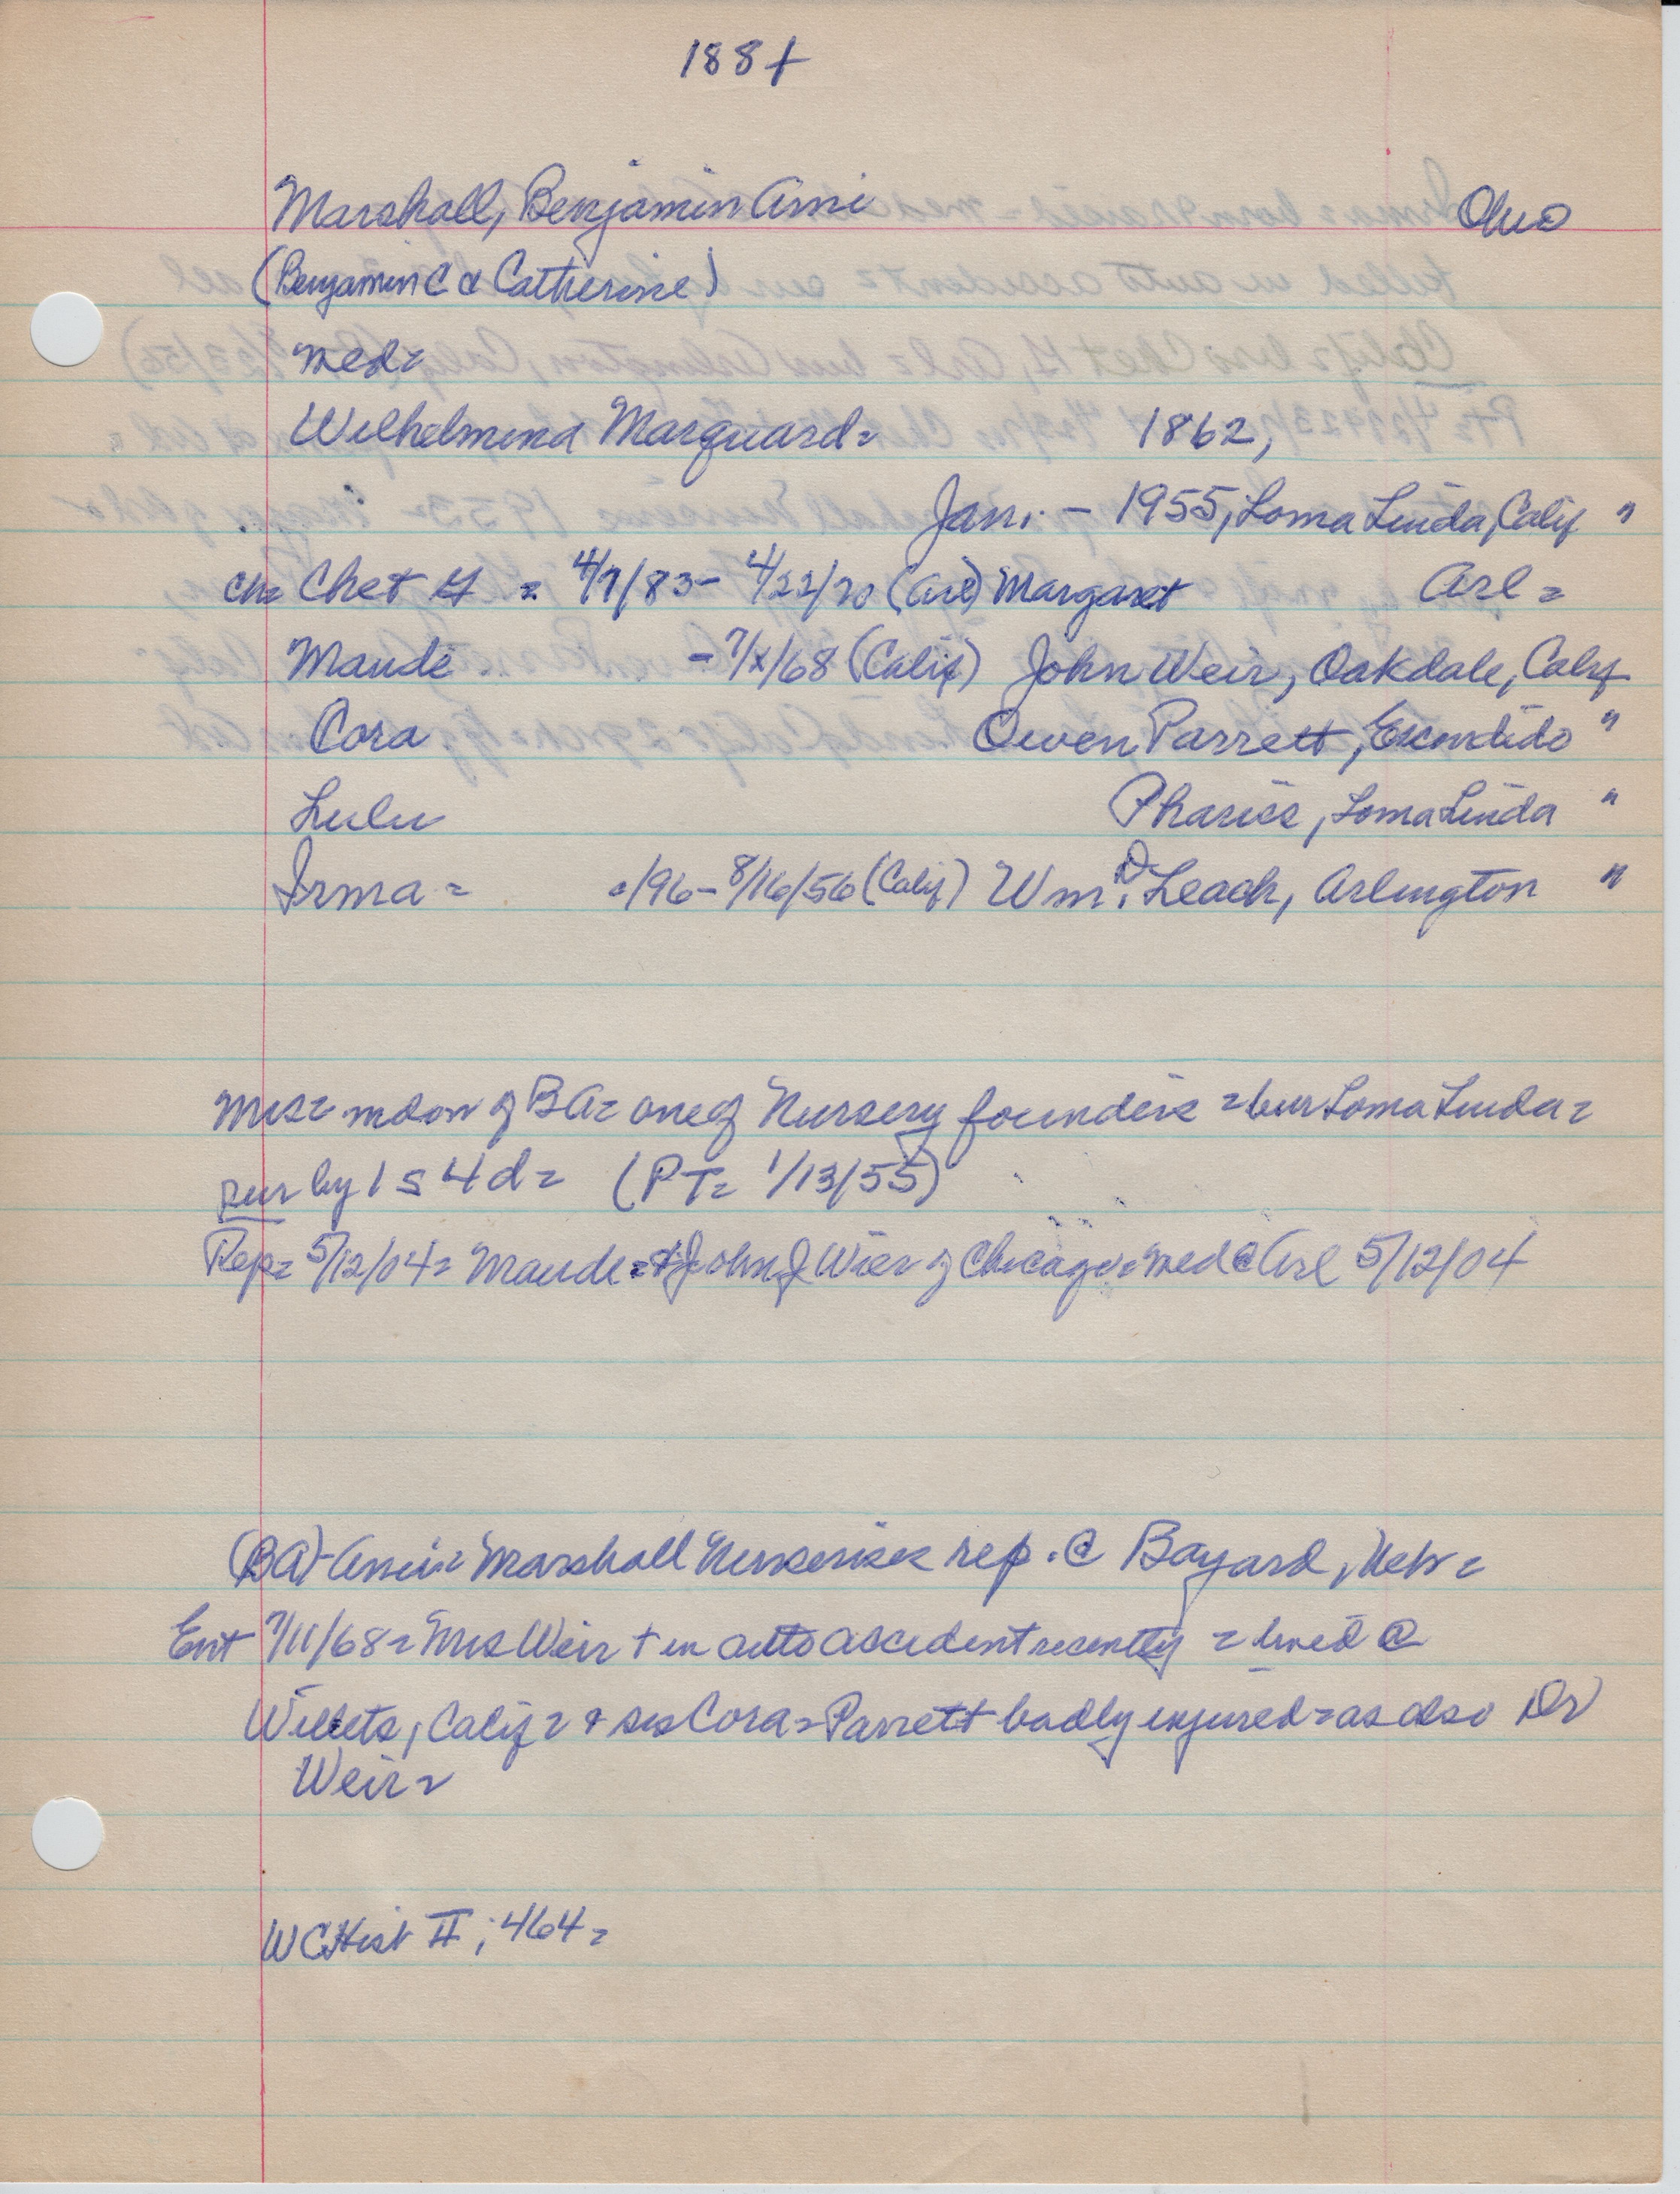 188+
Marshall, Benjamin Ami Ohio
(Benjamin C & Catherine)
med=
Wilhelmina Marquard= 1862,
Jan. - 1955, Loma Linda, Calif "
ch= Chet G = 4/7/83 - 4/22/70 (Arl) Margaret Arl =
Maude - 7/x/68 (Calif) John Weir, Oakdale, Calif
Cora Owen Parrett, Escondido "
Lulu Pharies, Loma Linda "
Irma = =/96 - 8/16/56 (Calif) Wm. D Leach, Arlington "
Mrs= m&on of BA= one of Nursery founders = bur Loma Linda=
sur by 1 s 4 d= (PT= 1/13/55)
Rep= 5/12/04= Maude= & John J Wier of Chicago= med @ Arl 5/12/04
(BA)- Ami= Marshall Nurseries rep. @ Bayard, Neb=
Ent 7/11/68= Mrs Weir + in auto accident recently = lived @
Willets, Calif = & sis Cora= Parrett badly injured= as also Dr
Weir=
WCHist II; 464=